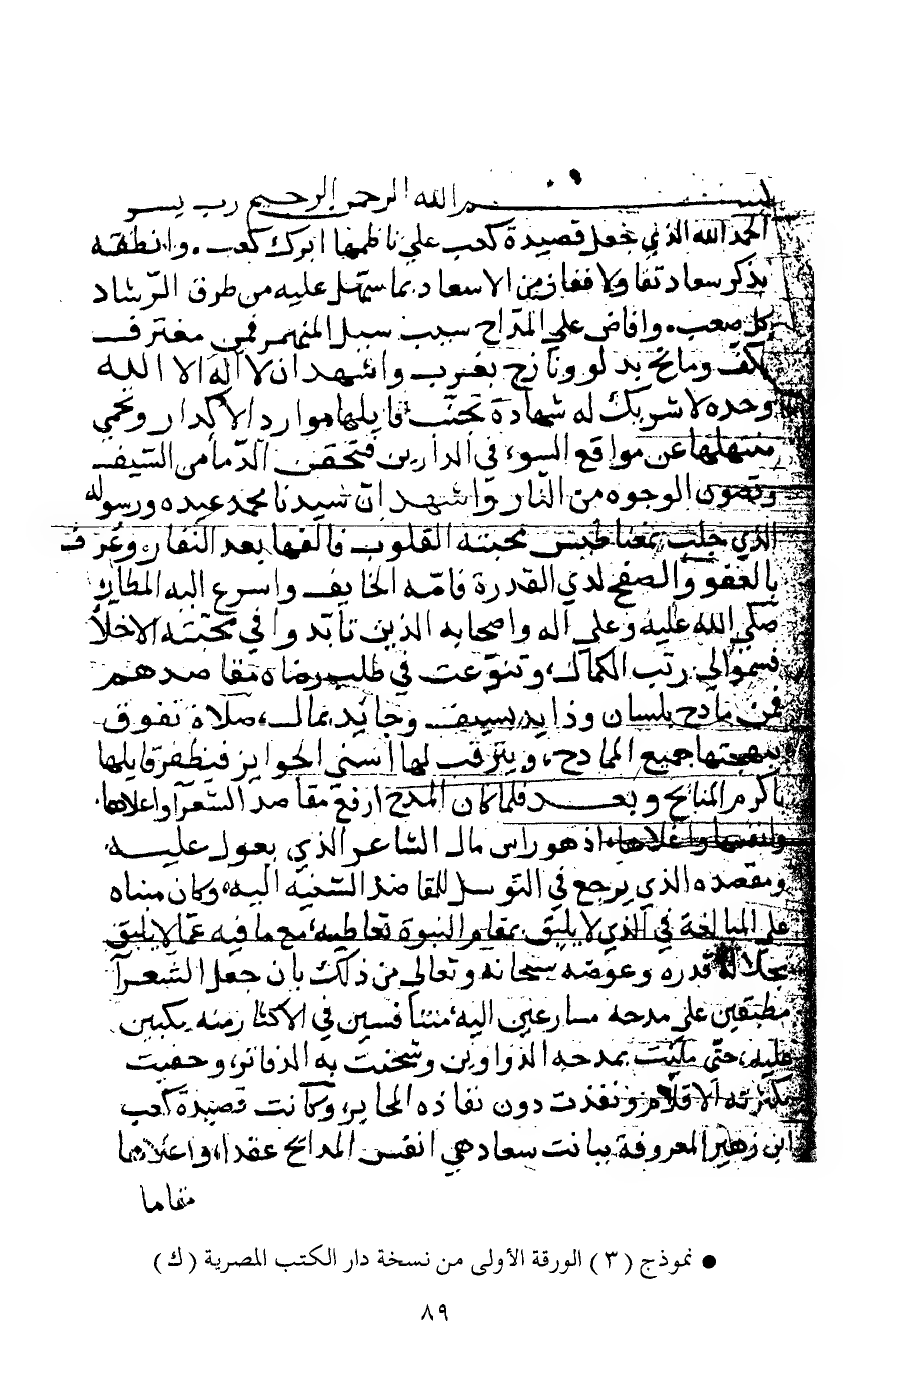 بسم الله الرحمن الرحيم رب يسر
الحمد لله الذي جعل قصيدة كعب علي ناظمها ابرك كعب . وانطقه
بذكر سعاد تفاولا ففاز من الاسعاد بما سهل عليه من طرق الرشاد
كل صعب . وافاض علي المداح سيب سيبل المنهمر فمن مغترف
بكف وماتح بدلو ونازح بغرب واشهد ان لا اله الا الله
وحده لا شريك له شهادة تجنب قايلها موارد الاكدار وتحمي
منتهلها عن مواقع السوء في الدارين فتحقن الدما من السيف
وتصون الوجوه من النار واشهد ان سيدنا محمد عبده ورسوله
الذي جلب بمغناطيس محبته القلوب فالفها بعد النفار وعرف
بالعفو والصفح لدي القدرة فامه الخايف واسرع اليه المطار
صلي الله عليه وعلي اله واصحابه الذين تابدوا في محبته الاخلا
فسموا الي رتب الكمال، وتنوعت في طلب رضاه مقاصدهم
فمن مادح بلسان وذايد بسيف وجايد بمال، صلاة تفوق
ببهجتها جميع المادح، ويترقب لها اسني الجوايز فيظفر قايلها
باكرم المنايح وبعد فلما كان المدح ارفع مقاصد الشعرآ واعلاها
وانفسها واغلاها، اذ هو راس مال الشاعر الذي يعول عليه
ومقصده الذي يرجع في التوسل للمقاصد السنية اليه، وكان مبناه
علي المبالغة في الذي لا يليق بمقام النبوة تعاطيه، مع ما فيه عما لا يليق
بجلالة قدره وعوضه سبحانه وتعالي من ذلك بان جعل الشعرآ
مطبقين علي مدحه مسارعين اليه، متنافسين في الاكثار منه مكبين
عليه، حتي مليت بمدحه الدواوين وشحنت به الدفاتر، وحفيت
بكثرته الاقلام ونفذت دون نفاذه المحابر، وكانت قصيدة كعب
ابن زهير المعروفة ببانت سعاد هي انفس المدايح عقدا، واعلاها
مقاما
• نموذج ( ٣ ) الورقة الأولى من نسخة دار الكتب المصرية ( ك )
٨٩